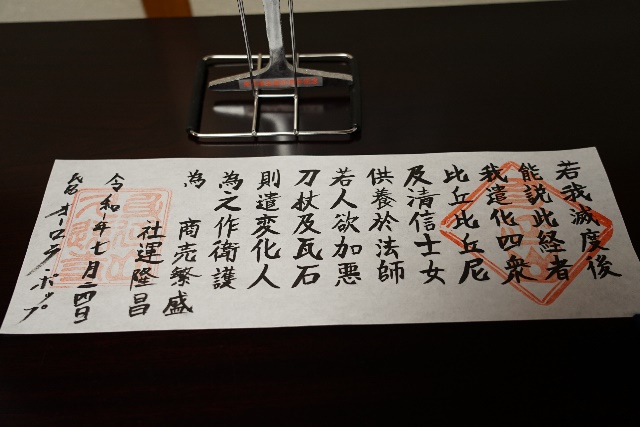 若我滅度後
能説此経者
我遣化四衆
比丘比丘尼
及清信士女
供養於法師
若人欲加悪
刀杖及瓦石
則遣変化人
為之作衛護
為 商売繁盛
社運隆昌
令和七年七月二四日
オロラホップ